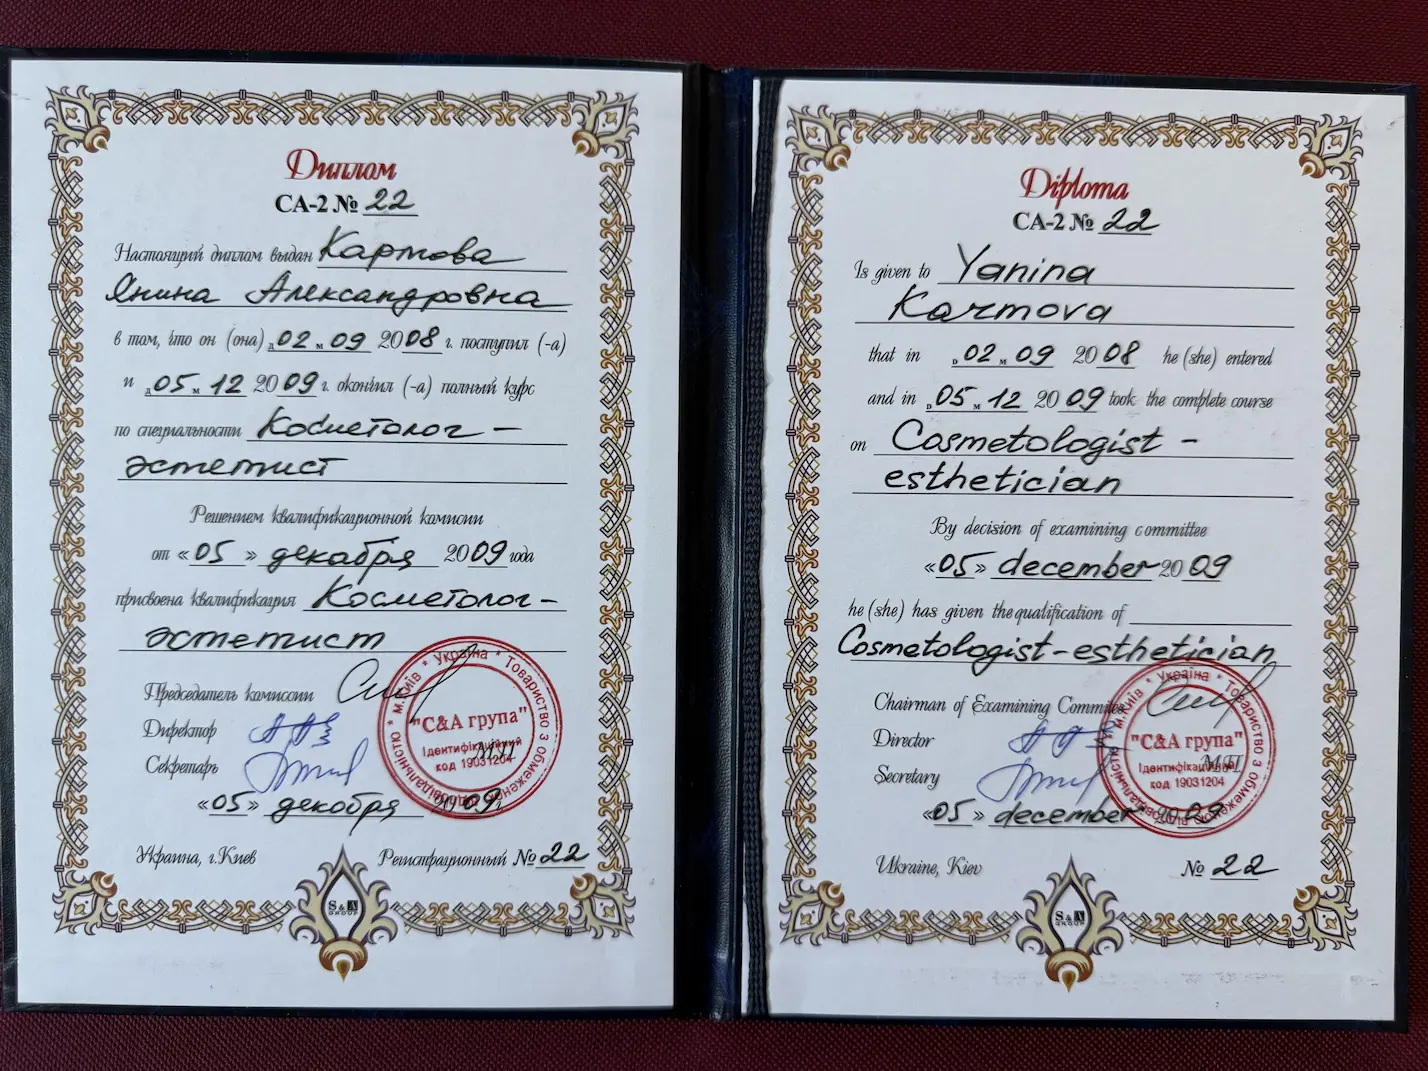 Диплом
СА-2 № 22
Настоящий диплом выдан Кармова
Янина Александровна
в том, что он (она) д 02 м 09 2008 г. поступил (-а)
и д 05 м 12 2009 г. окончил (-а) полный курс
по специальности Косметолог -
эстетист
Решением квалификационной комисии
от «05» декабря 2009 года
присвоена квалификация Косметолог-
эстетист
Председатель комиссии
Директор
Секретарь
«05» декабря 2009
Украина, г.Киев Регистрационный № 22
* Україна * Товариство з обмеженою відповідальністю * м.Київ
"С&А група"
Ідентифікаційний
код 19031204
МП
S & A
GROUP
Diploma
CA-2 № 22
Is given to Yanina
Karmova
that in D 02 M 09 2008 he (she) entered
and in D 05 M 12 2009 took the complete course
on Cosmetologist -
esthetician
By decision of examining committee
«05» december 2009
he (she) has given the qualification of
Cosmetologist-esthetician
Chairman of Examining Commitee
Director
Secretary
«05» december 2009
Ukraine, Kiev № 22
* Україна * Товариство з обмеженою відповідальністю * м.Київ
"С&А група"
Ідентифікаційний
код 19031204
МП
S & A
GROUP